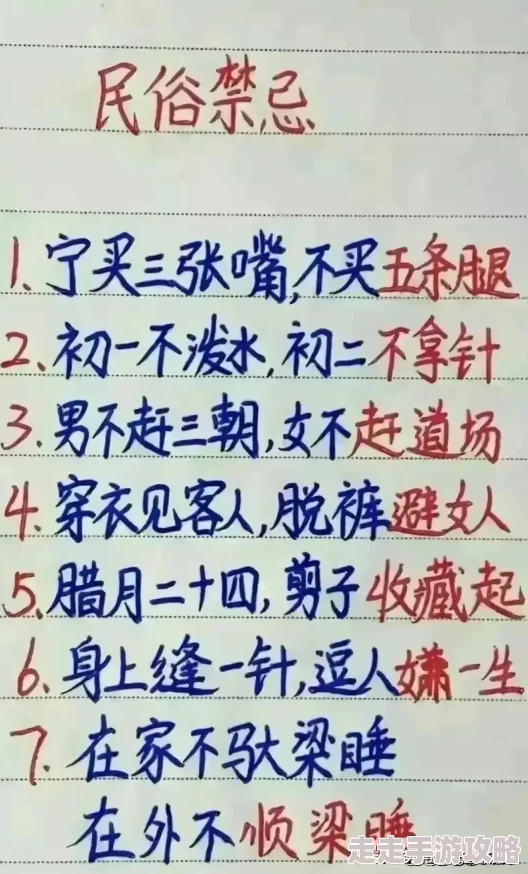 民俗禁忌
1.宁买三张嘴,不买五条腿
2.初一不泼水,初二不拿针
3.男不赶三朝,女不赶道场
4.穿衣见客人,脱裤避女人
5.腊月二十四,剪子收藏起
6.身上缝一针,逗人嫌一生
7.在家不驮梁睡
在外不顺梁睡
走走手游攻略